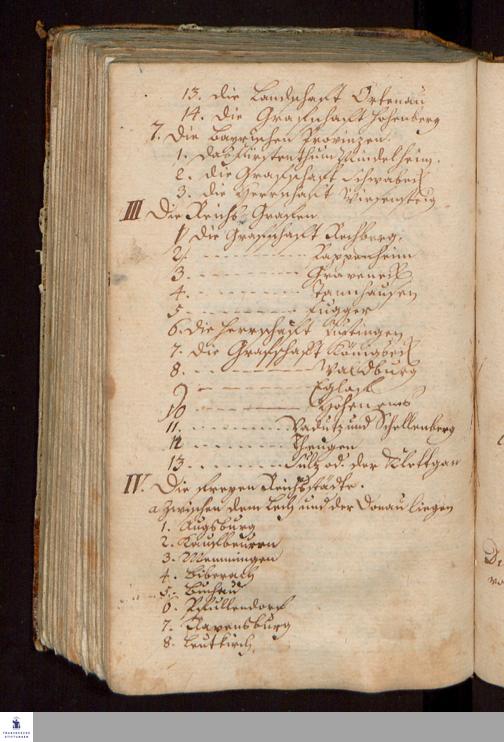 13. die Landschaft Ortenau
14. die Graffschafft Hohenberg
7. Die Bayrischen Provinzen.
1. das Fürstenthum Mindelheim.
2. die Graffschafft Schwabeck
3. die Herrschaft Wiesensteig
III Die Reichs-Grafen
1 die Graffschafft Rechberg.
2. - - - - - - Pappenheim
3. - - - - - - Graveneck
4. - - - - - - Tannhausen
5. - - - - - - Fugger
6. die Herrschafft
7. die Graffschafft Königseck
8. - - - - - - Waldburg
9 - - - - - - Eglof
10 - - - - - - Hohenems
11. - - - - - - Vadutz und Schellenberg
12 - - - - - - Thengen
13 - - - - - - Sulz od. der Klettgau
IV. Die freyen Reichsstädte.
a. zwischen dem Lech und der Donau liegen
1. Augsburg
2. Kauffbeuren
3. Memmingen
4. Biberach
5. Buchau
6. Pfullendorf
7. Ravensburg
8. Leutkirch
FRANCKESCHE
STIFTUNGEN